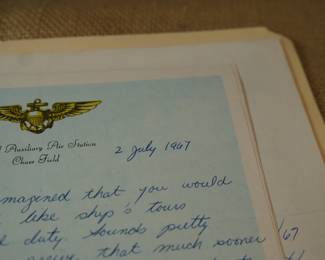 Auxiliary Air Station
Chase Field
2 July 1967
imagined that you would
like ship's tours
duty sounds pretty
that much sooner
/67